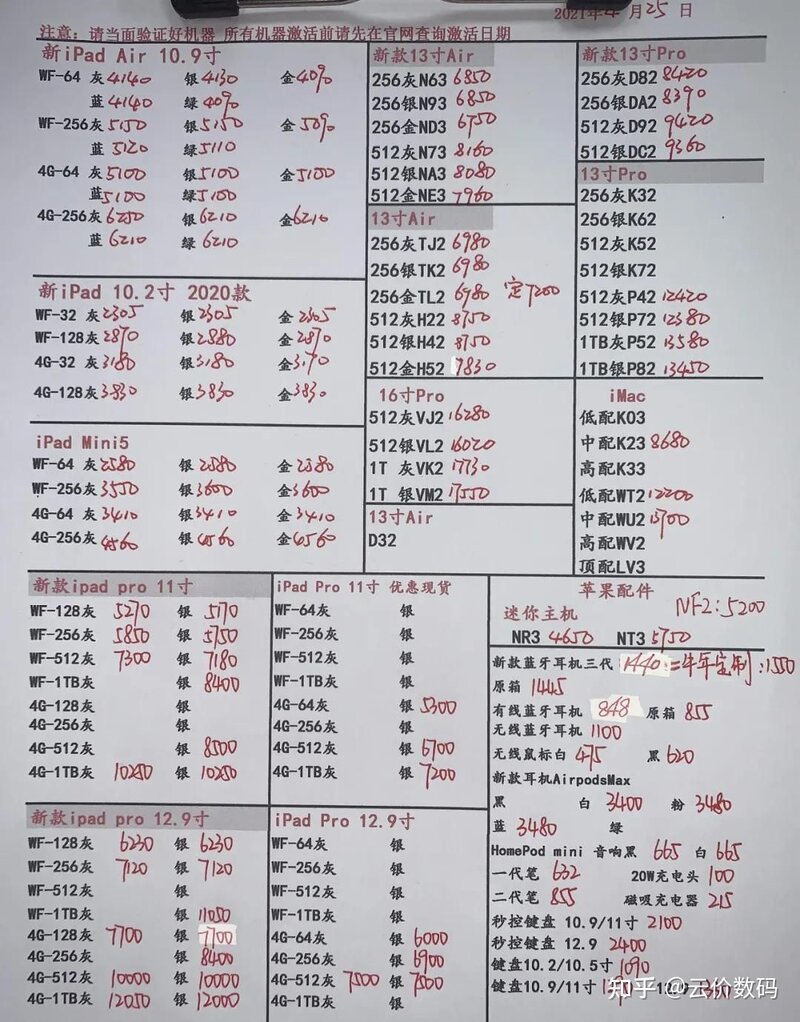 2021年4月25日
注意：请当面验证好机器 所有机器激活前请先在官网查询激活日期
新iPad Air 10.9寸
WF-64 灰4140 银4130 金4090
蓝4140 绿4090
WF-256灰5150 银5150 金5090
蓝5120 绿5110
4G-64 灰5100 银5100 金5100
蓝5100 绿5100
4G-256灰6250 银6210 金6210
蓝6210 绿6210
新iPad 10.2寸 2020款
WF-32 灰2305 银2305 金2305
WF-128灰2870 银2880 金2870
4G-32 灰3180 银3180 金3170
4G-128灰3830 银3830 金3830
iPad Mini5
WF-64 灰2580 银2580 金2580
WF-256灰3550 银3600 金3600
4G-64 灰3410 银3410 金3410
4G-256灰4560 银4560 金4560
新款13寸Air
256灰N63 6850
256银N93 6850
256金ND3 6750
512灰N73 8160
512银NA3 8080
512金NE3 7960
13寸Air
256灰TJ2 6980
256银TK2 6980
256金TL2 6980 定7200
512灰H22 8750
512银H42 8750
512金H52 7830
16寸Pro
512灰VJ2 16280
512银VL2 16020
1T 灰VK2 17730
1T 银VM2 17550
13寸Air
D32
新款13寸Pro
256灰D82 8420
256银DA2 8390
512灰D92 9420
512银DC2 9360
13寸Pro
256灰K32
256银K62
512灰K52
512银K72
512灰P42 12420
512银P72 12380
1TB灰P52 13580
1TB银P82 13450
iMac
低配K03
中配K23 8680
高配K33
低配WT2 12200
中配WU2 13700
高配WV2
顶配LV3
新款ipad pro 11寸
WF-128灰 5270 银 5170
WF-256灰 5850 银 5750
WF-512灰 7300 银 7180
WF-1TB灰 银 8400
4G-128灰 银
4G-256灰 银
4G-512灰 银 8500
4G-1TB灰 10250 银 10250
新款ipad pro 12.9寸
WF-128灰 6230 银 6230
WF-256灰 7120 银 7120
WF-512灰 银
WF-1TB灰 银 11050
4G-128灰 7700 银 7700
4G-256灰 银 8400
4G-512灰 10000 银 10000
4G-1TB灰 12050 银 12000
iPad Pro 11寸 优惠现货
WF-64灰 银
WF-256灰 银
WF-512灰 银
WF-1TB灰 银
4G-64灰 银 5300
4G-256灰 银
4G-512灰 银 6700
4G-1TB灰 银 7200
iPad Pro 12.9寸
WF-64灰 银
WF-256灰 银
WF-512灰 银
WF-1TB灰 银
4G-64灰 银 6000
4G-256灰 银 6900
4G-512灰 7500 银 7500
4G-1TB灰 银
苹果配件
迷你主机 NF2:5200
NR3 4650 NT3 5750
新款蓝牙耳机三代 1440 牛年定制:1550
原箱 1445
有线蓝牙耳机 848 原箱 855
无线蓝牙耳机 1100
无线鼠标白 475 黑 620
新款耳机AirpodsMax
黑 白 3400 粉 3480
蓝 3480 绿
HomePod mini 音响黑 665 白 665
一代笔 632 20W充电头 100
二代笔 855 磁吸充电器 215
秒控键盘 10.9/11寸 2100
秒控键盘 12.9 2400
键盘10.2/10.5寸 1090
键盘10.9/11寸
知乎 @云价数码